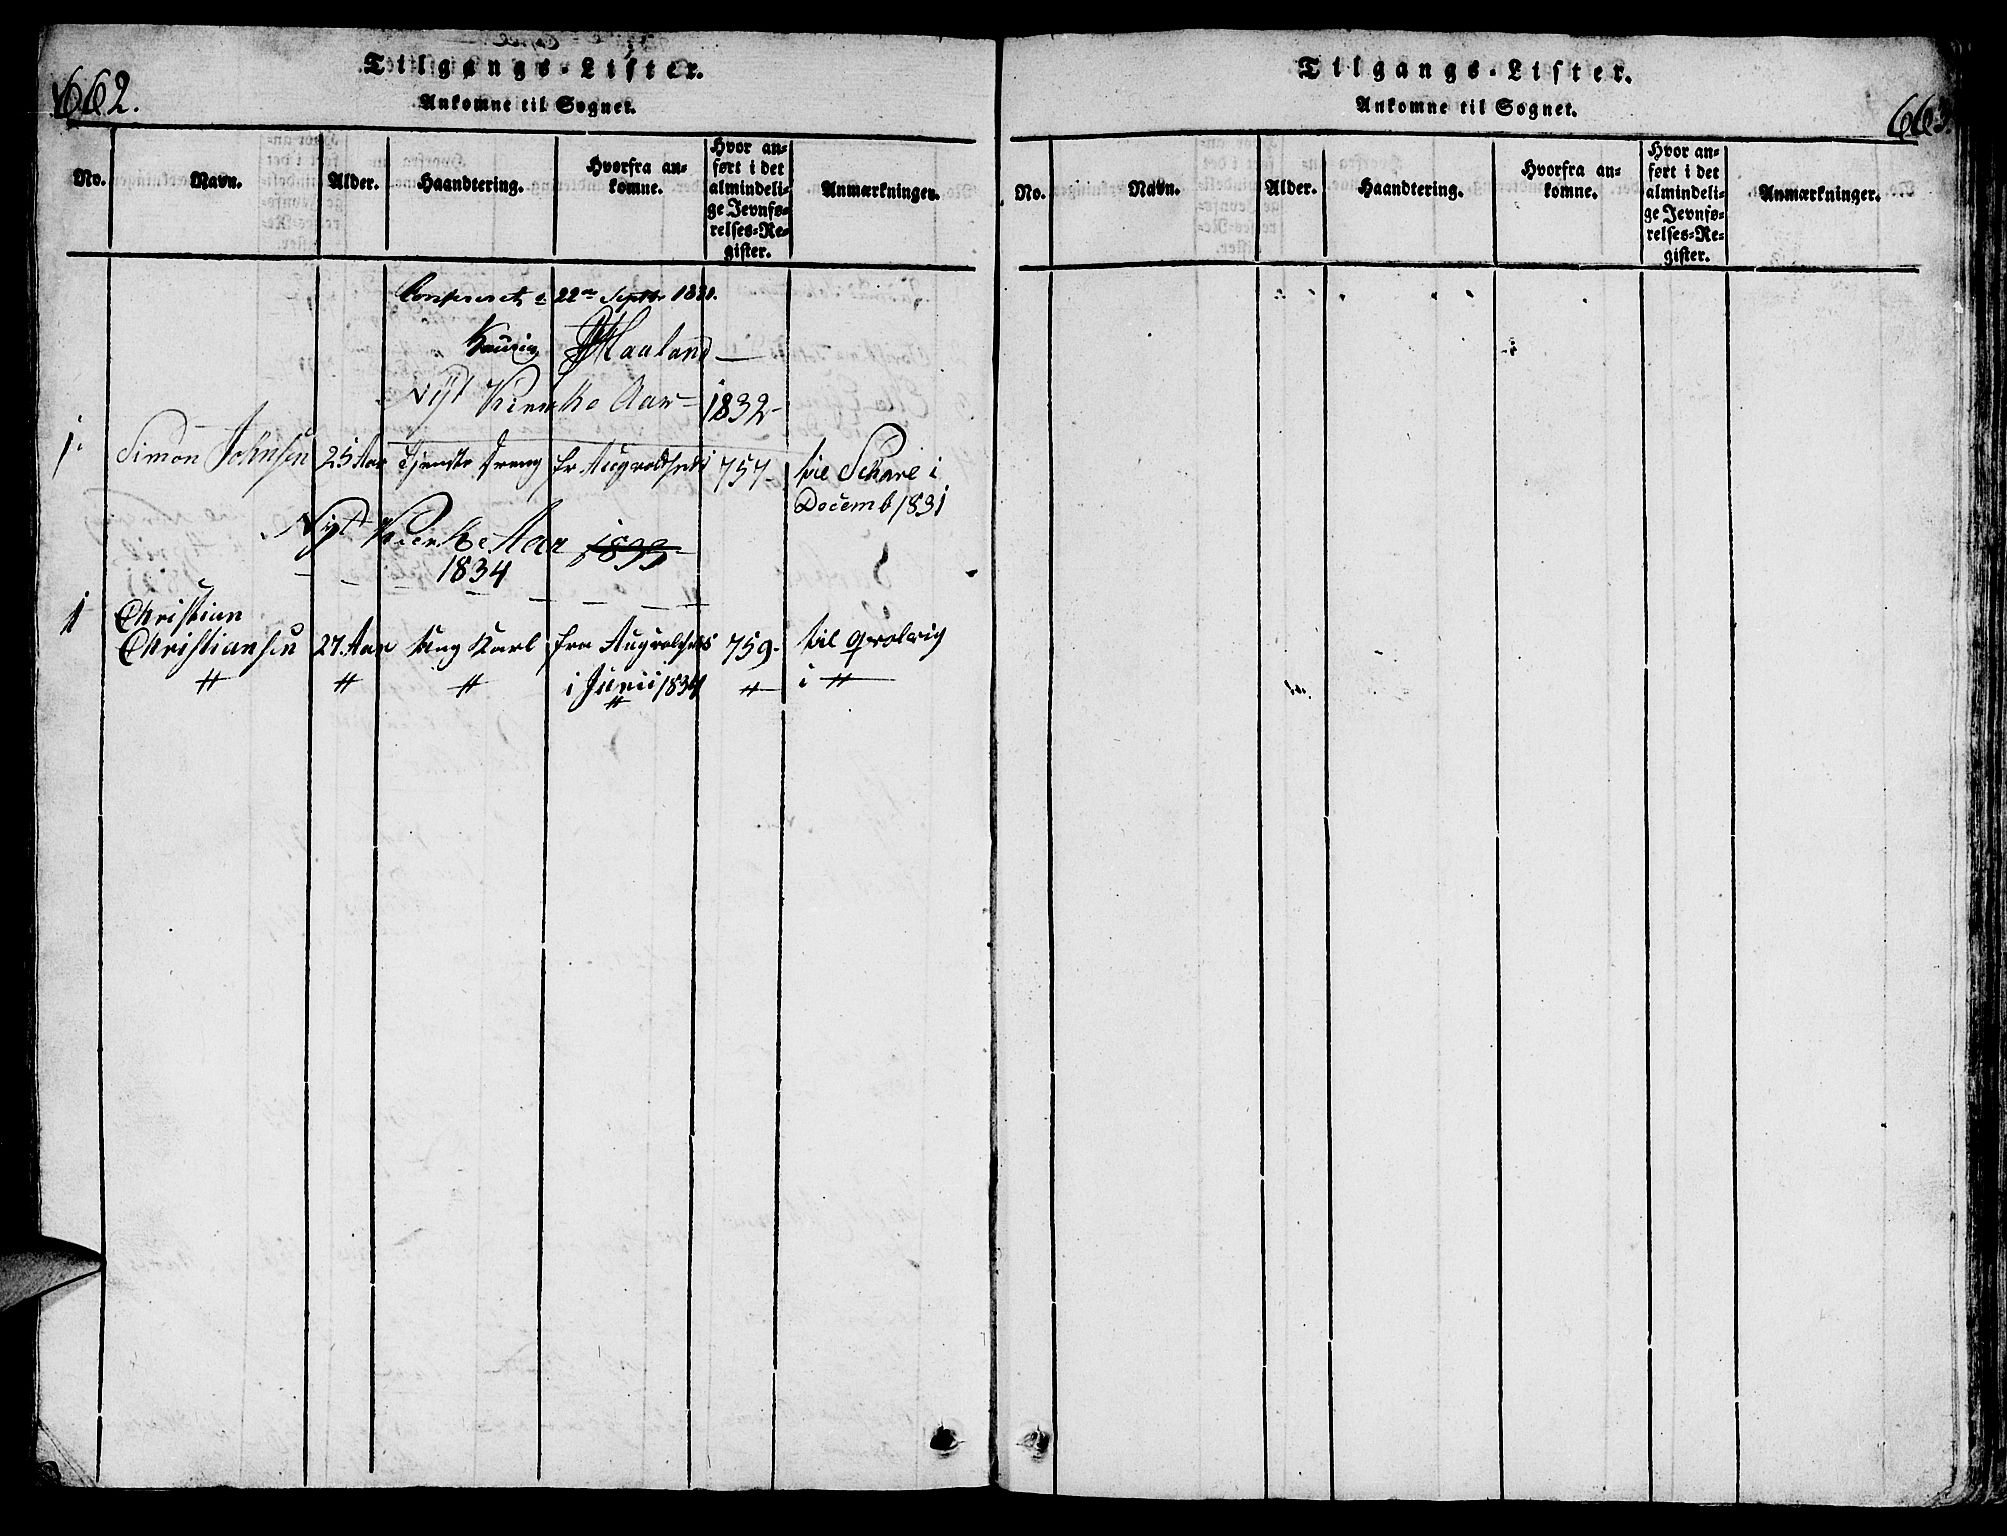 662.
Tilgangs-Lister.
Ankomne til Sognet.
No.
Navn.
Alder.
Haandtering.
Hvorfra an-
komne.
Hvor an-
ført i det
almindeli-
ge Jevnfø-
relses-Re-
gister.
Anmærkninger.
22de Septbr 1831.
Haaland
Nyt Kierke Aar 1832
1. Simon Johnsen 25 Aar Tjeneste Dreng fr Augvaldsnæs 757 til Schare i
Decemb 1831
Nyt Kierke Aar 1833
1834
1 Christian
Christiansen 27 Aar Ung Karl fra Augvaldsnæs 759. til
" " " i Junii 1834 " i "
"
Tilgangs-Lister.
Ankomne til Sognet.
663.
No.
Navn.
Alder.
Haandtering.
Hvorfra an-
komne.
Hvor an-
ført i det
almindeli-
ge Jevnfø-
relses-Re-
gister.
Anmærkninger.